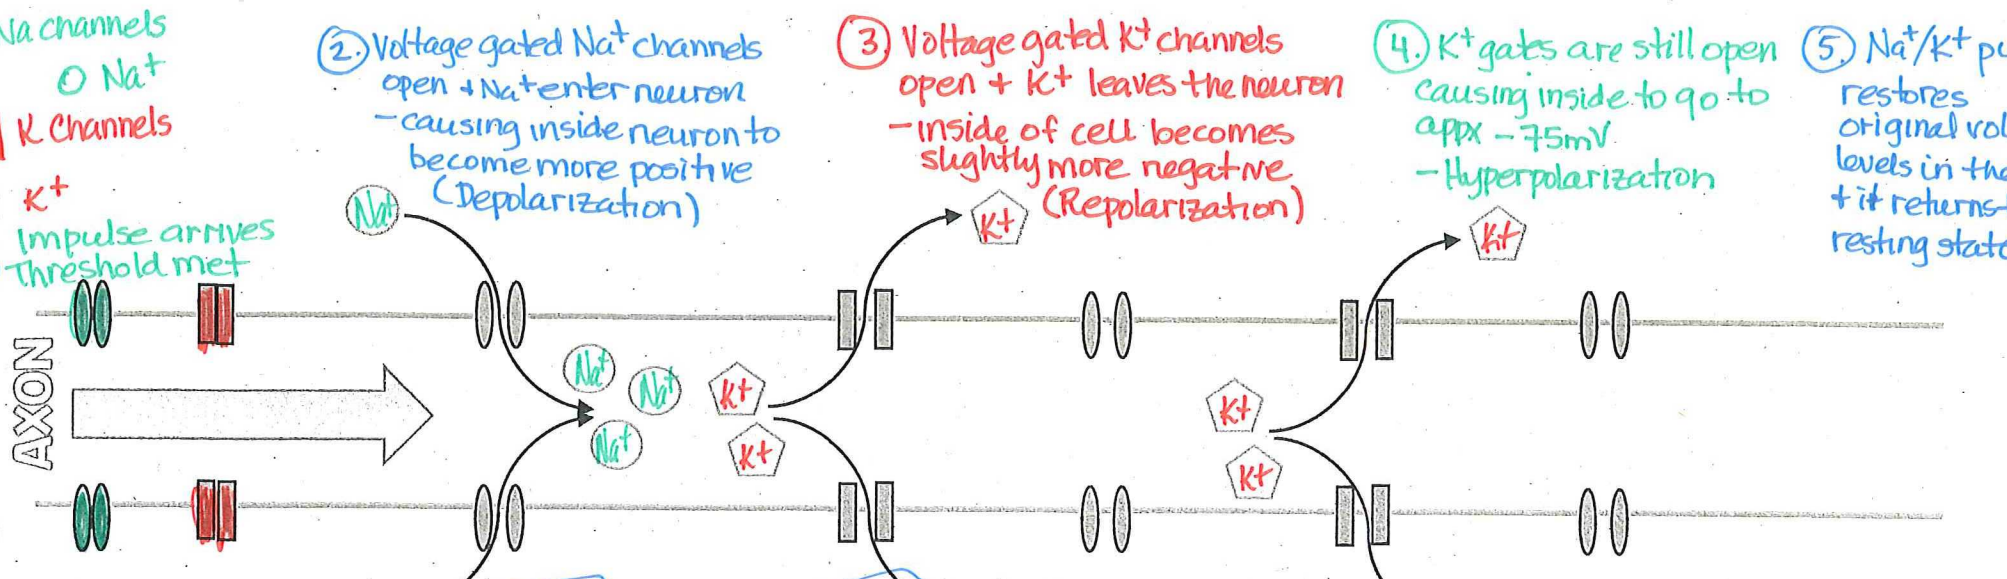 Na channels
O Na+
K Channels
K+
Impulse arrives
Threshold met
2. Voltage gated Na+ channels
open + Na+ enter neuron
- causing inside neuron to
become more positive
(Depolarization)
3. Voltage gated K+ channels
open + K+ leaves the neuron
- inside of cell becomes
slightly more negative
(Repolarization)
4. K+ gates are still open
causing inside to go to
appx -75mV
- Hyperpolarization
5. Na+/K+ pu
restores
original vol
levels in the
+ it returns
resting state
Na+
K+
K+
AXON
Na+
Na+
Na+
K+
K+
K+
K+